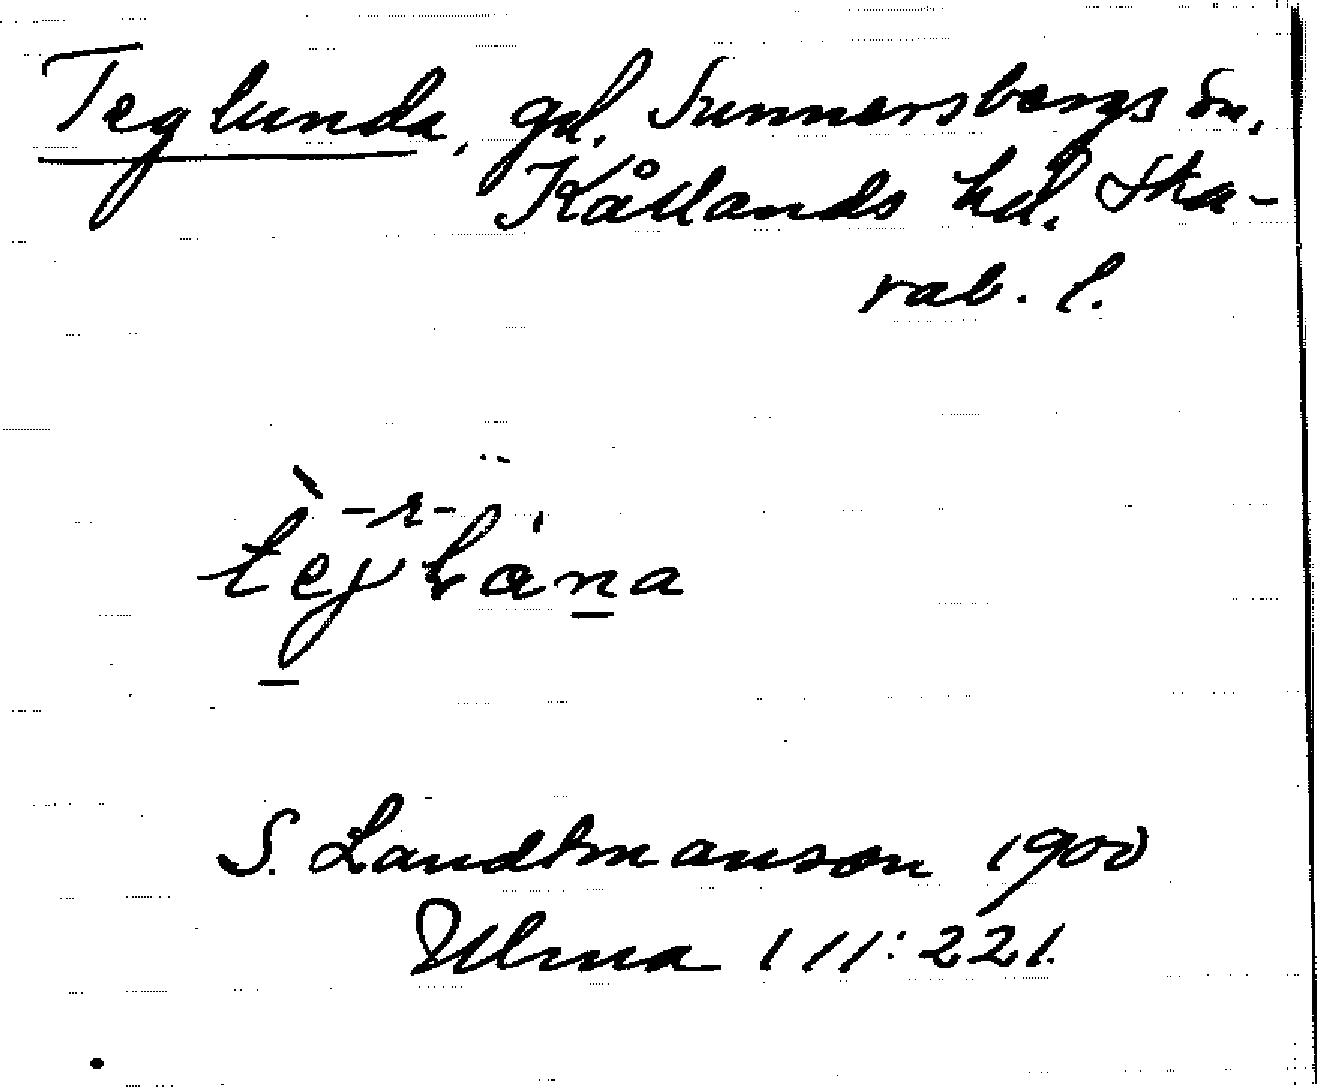 Teglunda, gd. Sunnersbergs sn,
Kållands hd. Ska-
rab. l.
-r-
tejlana
S. Landtmanson 1900
Ulma 111:221.